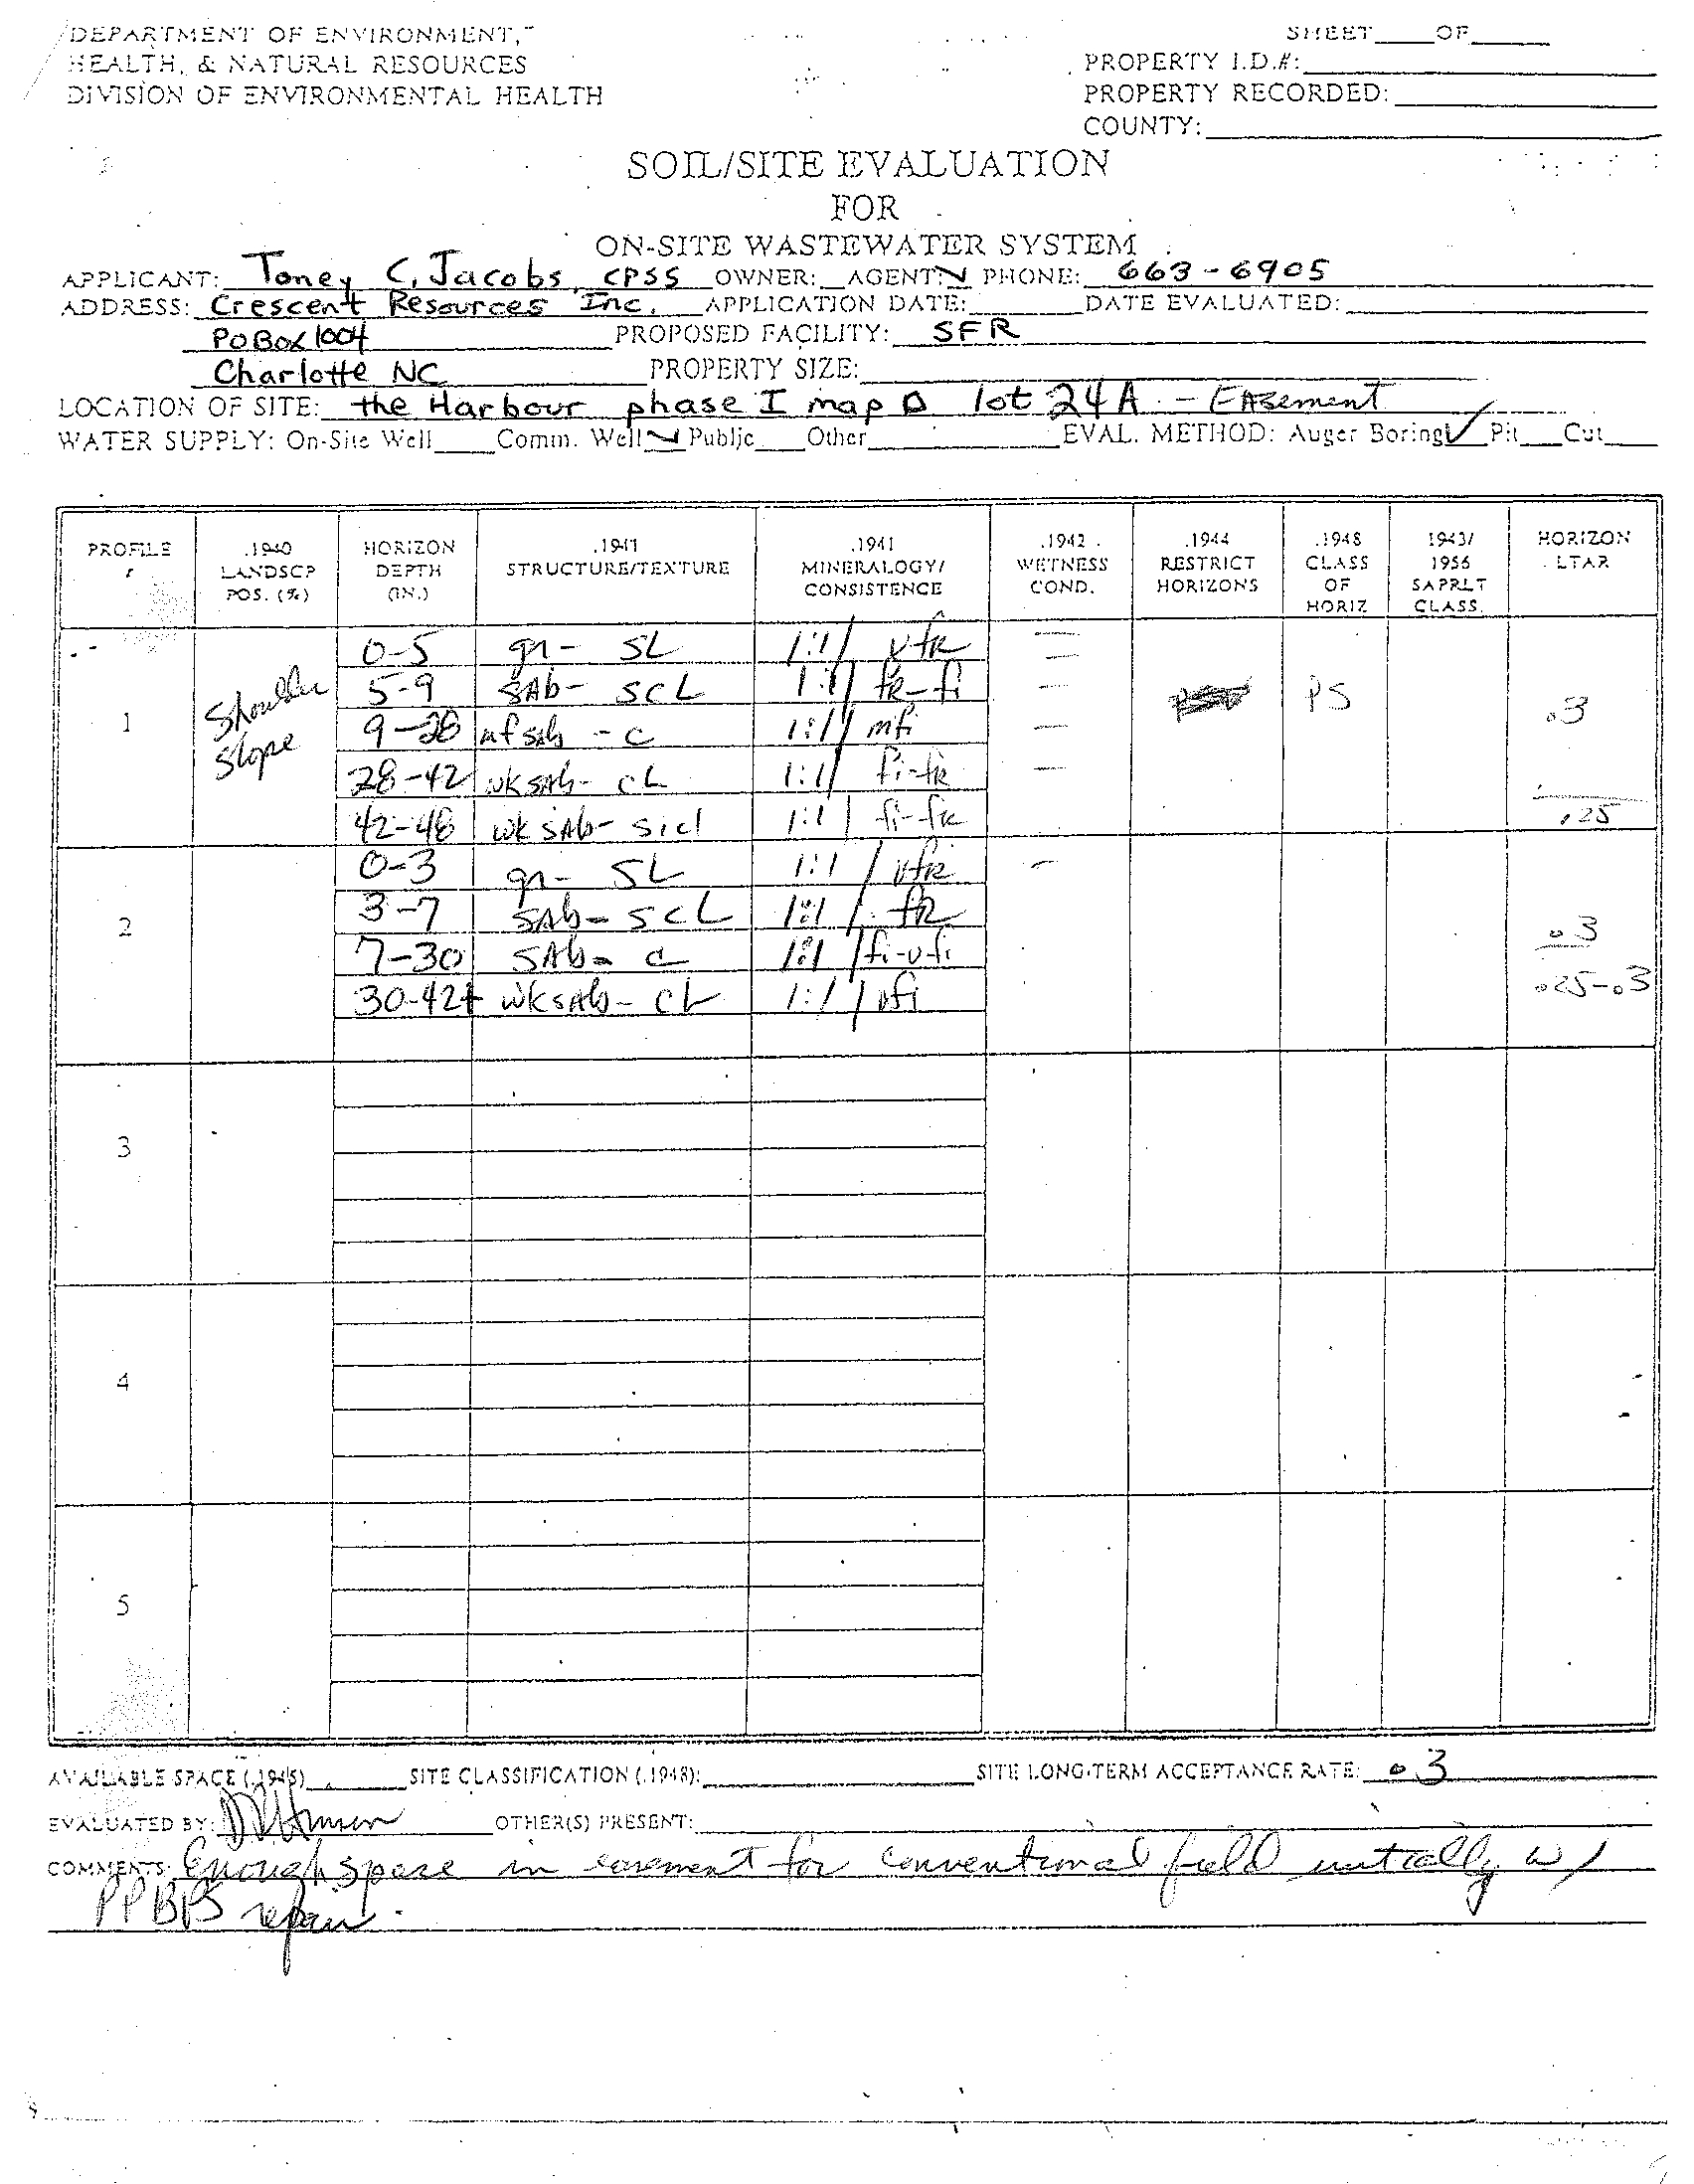 DEPARTMENT OF ENVIRONMENT,
HEALTH, & NATURAL RESOURCES
DIVISION OF ENVIRONMENTAL HEALTH
SHEET____OF____
PROPERTY I.D.#:
PROPERTY RECORDED:
COUNTY:
SOIL/SITE EVALUATION
FOR
ON-SITE WASTEWATER SYSTEM
APPLICANT: Toney C. Jacobs, CPSS OWNER: AGENT: PHONE: 663-6905
ADDRESS: Crescent Resources Inc. APPLICATION DATE: DATE EVALUATED:
PO Box 1004 PROPOSED FACILITY: SFR
Charlotte NC PROPERTY SIZE:
LOCATION OF SITE: the Harbour phase I map D lot 24A - Easement
WATER SUPPLY: On-Site Well____Comm. Well ✓ Public____Other____ EVAL. METHOD: Auger Boring ✓ Pit____Cut____
PROFILE # .1940 LANDSCP POS. (%) HORIZON DEPTH (IN.) .1941 STRUCTURE/TEXTURE .1941 MINERALOGY/ CONSISTENCE .1942 WETNESS COND. .1944 RESTRICT HORIZONS .1948 CLASS OF HORIZ .1943/ 1956 SAPRLT CLASS. HORIZON LTAR
1 Shoulder slope
0-5 gr- SL 1:1/ vfr
5-9 SAb- SCL 1:1/ fR-fi PS .3
9-28 sab - C 1:1/ mfi
28-42 wk sab- CL 1:1/ fi-fR
42-48 wk SAb- sicl 1:1/ fi-fr .25
2
0-3 gr- SL 1:1 / vfR
3-7 SAb- SCL 1:1 / fR
7-30 SAb- C 1:1 / fi-vfi .3
30-42+ wk SAb- CL 1:1 / vfi .25-.3
3
4
5
AVAILABLE SPACE (.1945) SITE CLASSIFICATION (.1948): SITE LONG-TERM ACCEPTANCE RATE: .3
EVALUATED BY: OTHER(S) PRESENT:
COMMENTS: Enough space in easement for conventional field initially w/
PPBPS repair.